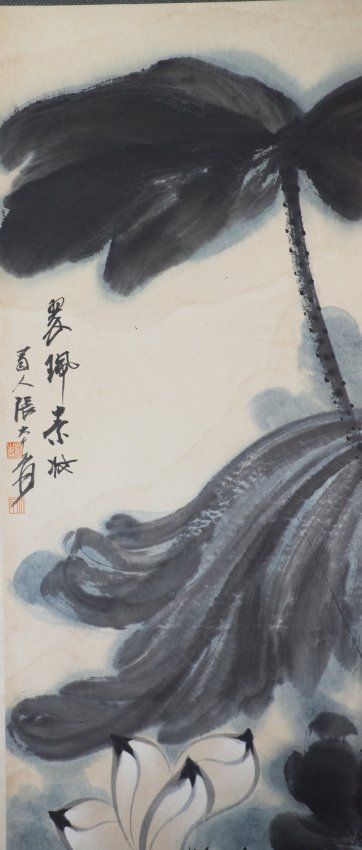 翠珮素妝
蜀人張大千爰